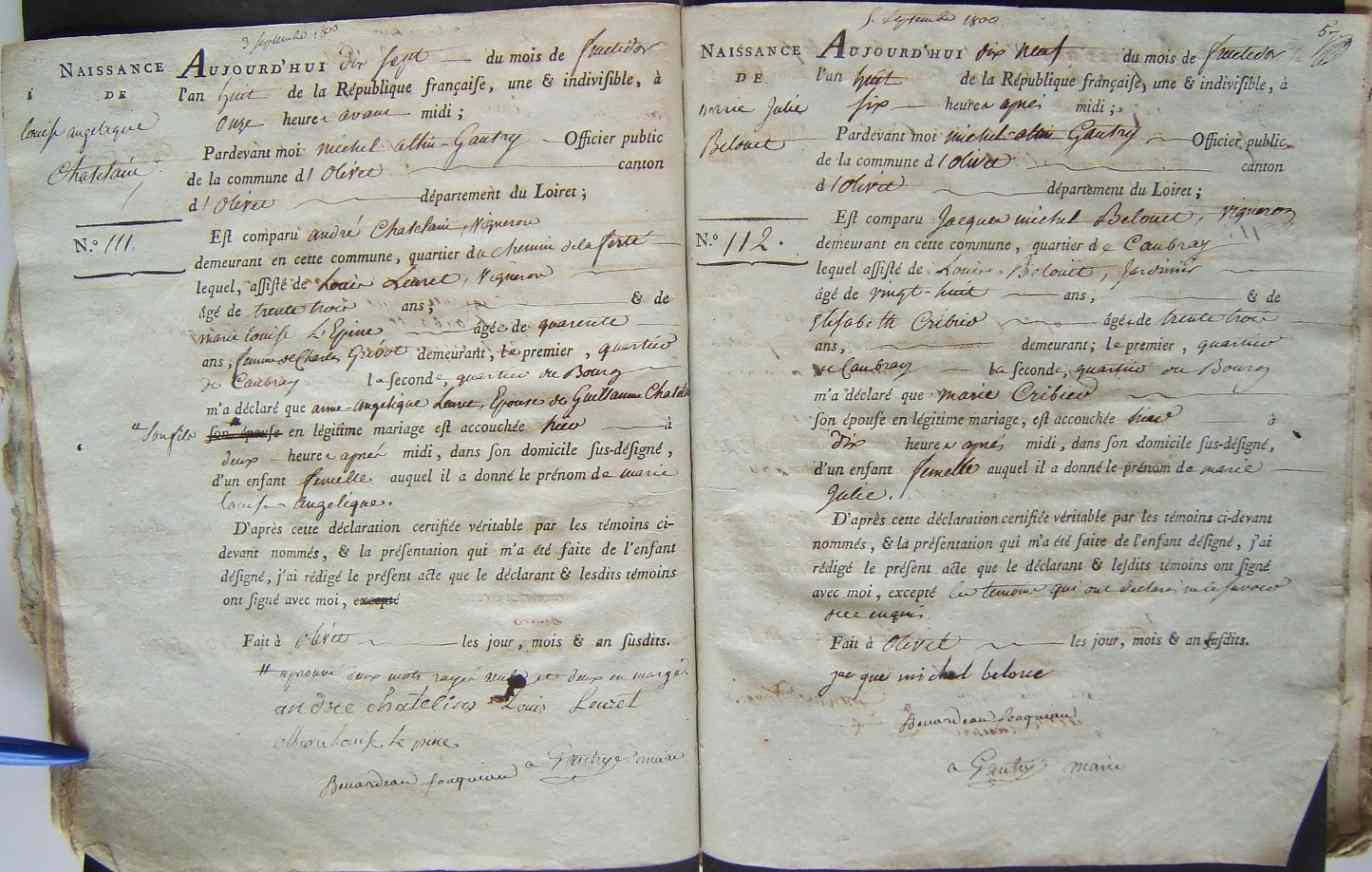 3 septembre 1800
NAISSANCE
DE
louise angelique
Chatelain
N.º 111.
AUJOURD'HUI dix sept du mois de fructidor
l'an huit de la République française, une & indivisible, à
onze heures avant midi ;
Pardevant moi michel albin Gautry Officier public
de la commune d'Olivet canton
d'Olivet département du Loiret ;
Est comparu andré Chatelain, Vigneron
demeurant en cette commune, quartier du chemin de la ferté
lequel, assisté de Louis Leuret, Vigneron
âgé de trente trois ans ; & de
marie louise L'Epine âgée de quarente
ans, femme de Charles Gribot demeurant, le premier, quartier
de Caubray la seconde, quartier du Bourg
m'a déclaré que anne angelique Leuret, Epouse de Guillaume Chatelain
" son fils son épouse en légitime mariage est accouchée hier à
deux heures après midi, dans son domicile sus-désigné,
d'un enfant femelle auquel il a donné le prénom de marie
louise angelique.
D'après cette déclaration certifiée véritable par les témoins ci-
devant nommés, & la présentation qui m'a été faite de l'enfant
désigné, j'ai rédigé le présent acte que le déclarant & lesdits témoins
ont signé avec moi, excepté
Fait à olivet les jour, mois & an susdits.
" aprouvé deux mots rayés nuls et deux en marge
andre chatelin Louis Leuret
Benardeau fouqueau a Gautry maire
5 Septembre 1800
NAISSANCE
DE
marie Julie
Belouet
N.º 112.
AUJOURD'HUI dix neuf du mois de fructidor
l'an huit de la République française, une & indivisible, à
six heures après midi ;
Pardevant moi michel albin Gautry Officier public
de la commune d'Olivet canton
d'Olivet département du Loiret ;
Est comparu Jacques michel Belouet, Vigneron
demeurant en cette commune, quartier de Caubray
lequel assisté de Louis Belouet, Jardinier
âgé de vingt-huit ans, & de
Elisabeth Cribier âgée de trente trois
ans, demeurant ; le premier, quartier
de Caubray la seconde, quartier du Bourg
m'a déclaré que marie Cribier
son épouse en légitime mariage, est accouchée hier à
dix heures après midi, dans son domicile sus-désigné,
d'un enfant femelle auquel il a donné le prénom de marie
Julie.
D'après cette déclaration certifiée véritable par les témoins ci-devant
nommés, & la présentation qui m'a été faite de l'enfant désigné, j'ai
rédigé le présent acte que le déclarant & lesdits témoins ont signé
avec moi, excepté les temoins qui ont declaré ne le savoir
de ce enquis.
Fait à Olivet les jour, mois & an susdits.
jacque michel beloue
Benardeau fouqueau
a Gautry maire